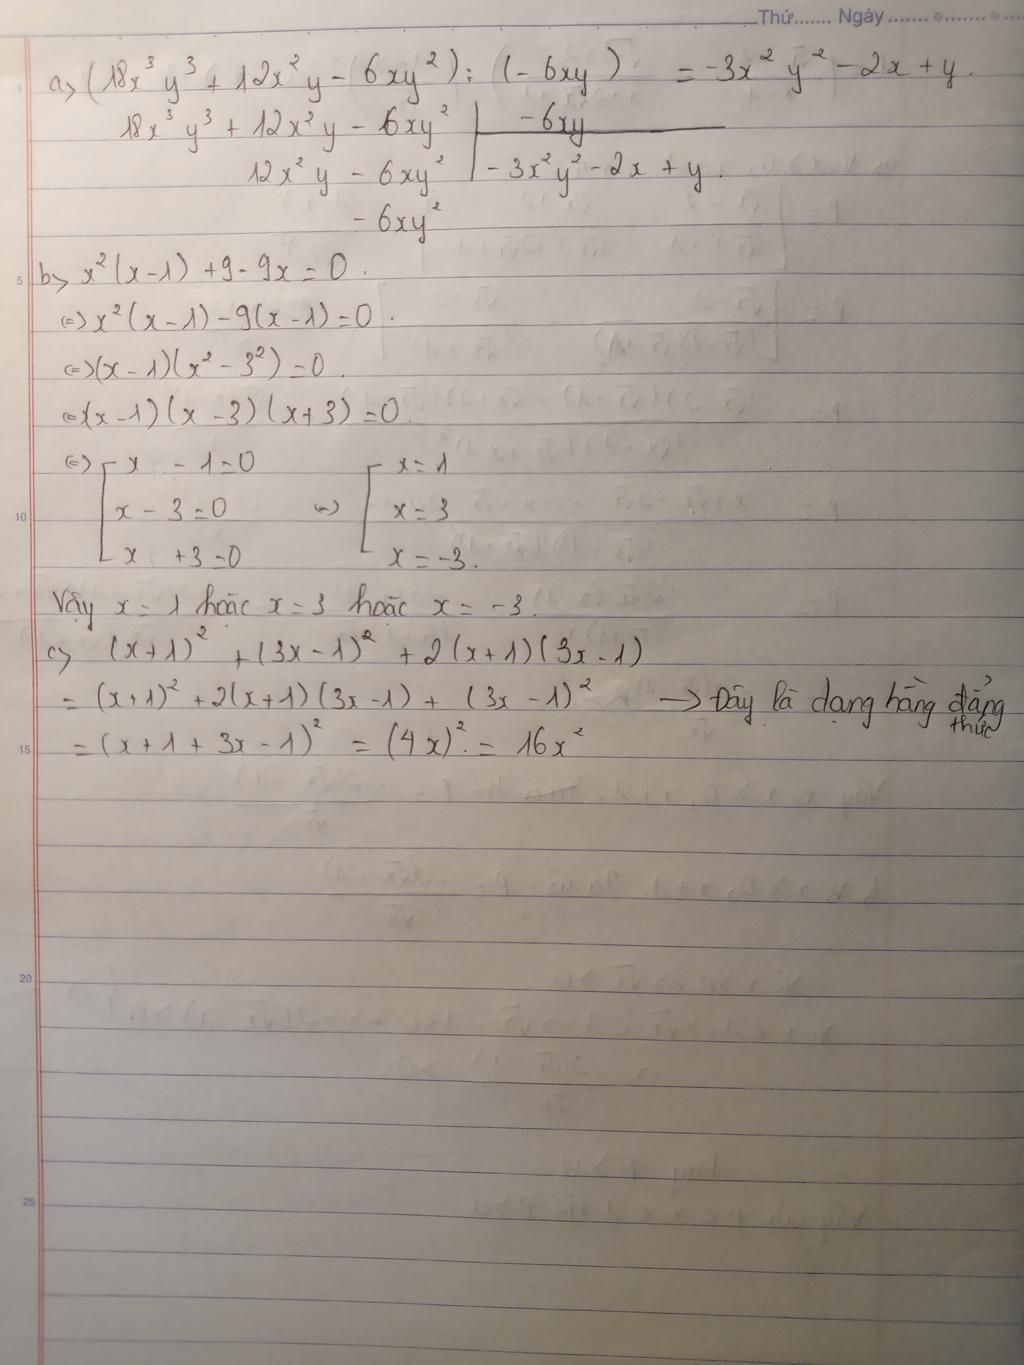 Thứ....... Ngày ....................
a> (18x³y³ + 12x²y - 6xy²) : (-6xy) = -3x²y² - 2x + y.
18x³y³ + 12x²y - 6xy² | -6xy
12x²y - 6xy² | -3x²y² - 2x + y.
- 6xy²
5 b> x²(x-1) + 9 - 9x = 0.
(=) x²(x-1) - 9(x-1) = 0.
(=) (x-1)(x² - 3²) = 0.
(=) (x-1)(x-3)(x+3) = 0.
(=) [ x - 1 = 0 (=) [ x = 1
10 x - 3 = 0 x = 3
x + 3 = 0 x = -3.
Vậy x = 1 hoặc x = 3 hoặc x = -3.
c> (x+1)² + (3x-1)² + 2(x+1)(3x-1)
= (x+1)² + 2(x+1)(3x-1) + (3x-1)² → Đây là dạng hằng đẳng thức
15 = (x+1+3x-1)² = (4x)². = 16x²
20
25